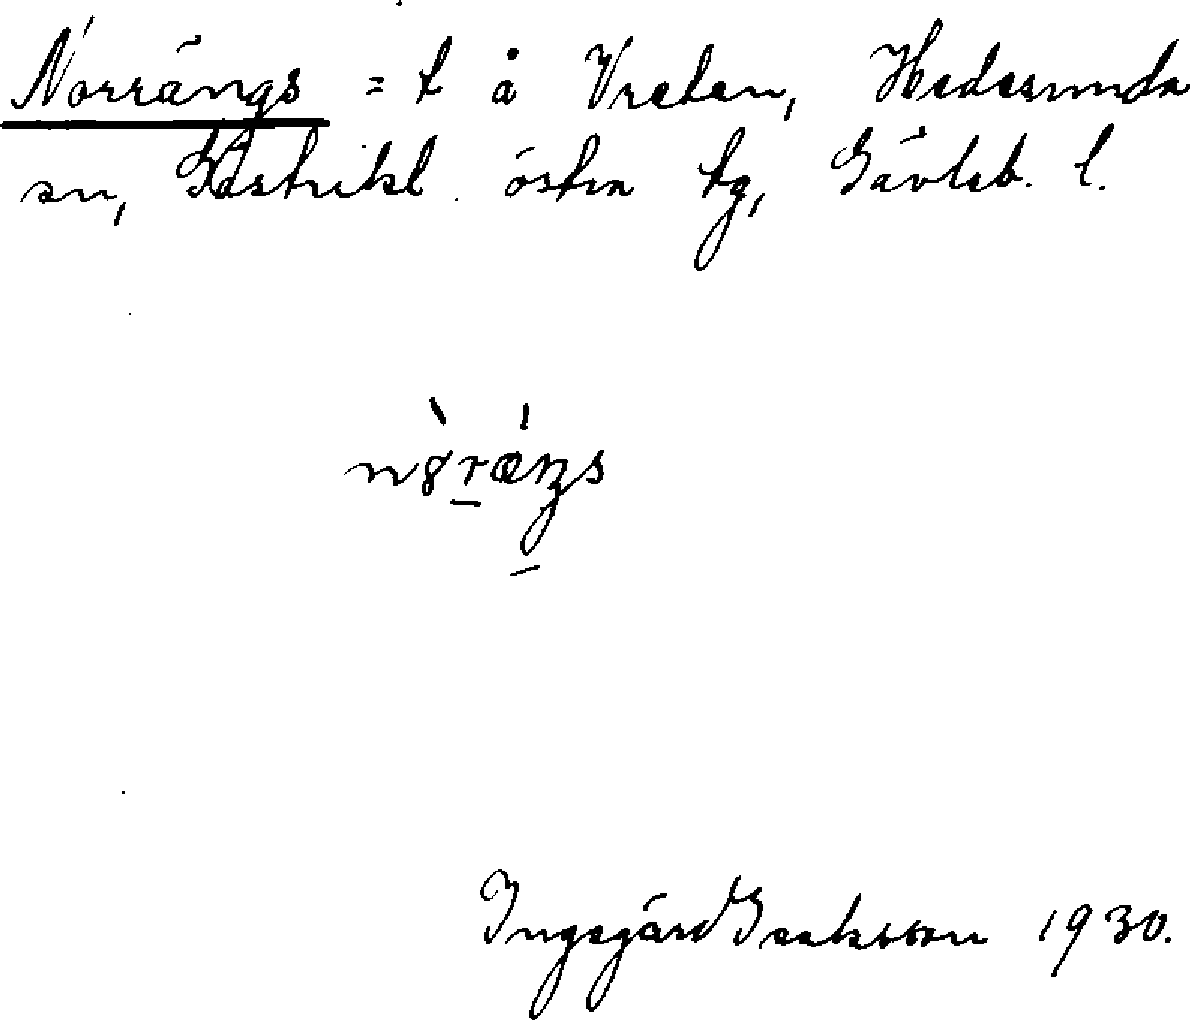 Norrängs = t å Vreten, Hedesunda
sn, Gästrikl. östra tg, Gävleb. l.
Ingegärd Isaksson 1930.